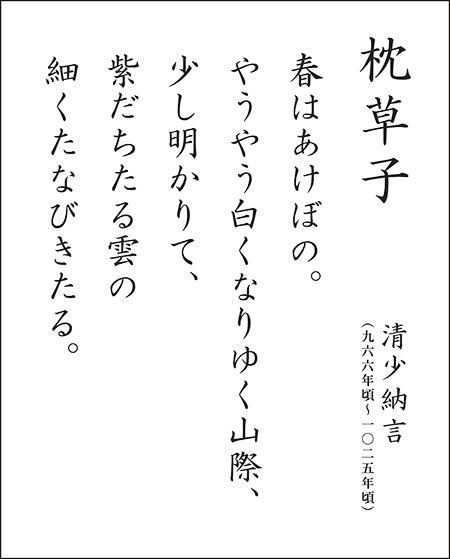 枕草子
清少納言
(九六六年頃～一〇二五年頃)
春はあけぼの。
やうやう白くなりゆく山際、
少し明かりて、
紫だちたる雲の
細くたなびきたる。